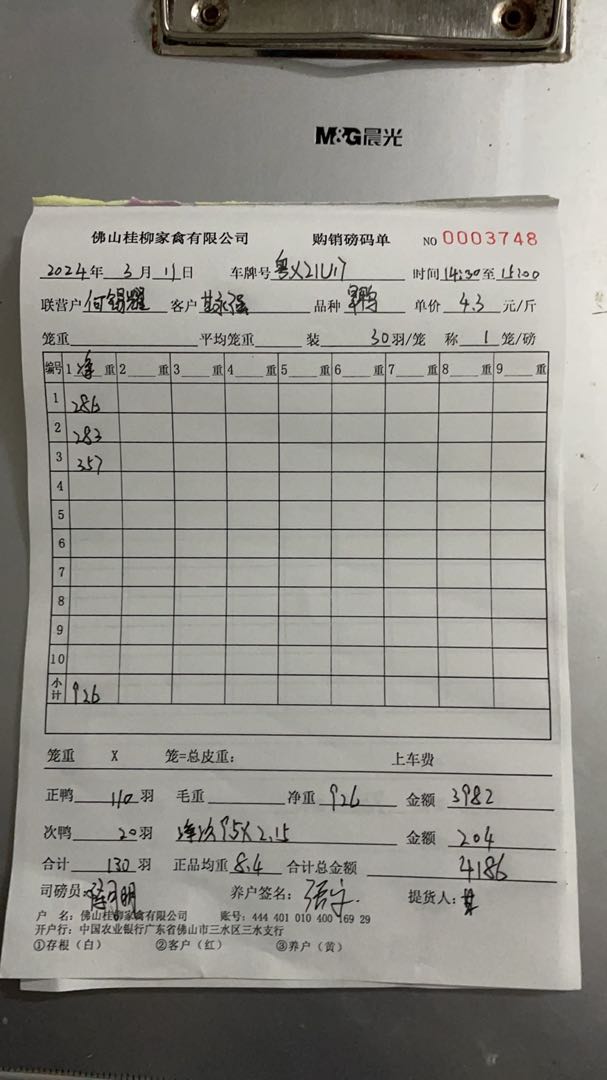 M&G晨光
佛山桂柳家禽有限公司 购销磅码单 NO 0003748
2024年 3月 11日 车牌号 粤X21U17 时间 14:30至 15:00
联营户 何锡耀 客户 永强 品种 鸭 单价 4.3 元/斤
笼重 平均笼重 装 30羽/笼 称 1 笼/磅
编号 1 净 重 2 重 3 重 4 重 5 重 6 重 7 重 8 重 9 重
1 286
2 283
3 357
4
5
6
7
8
9
10
小计 926
笼重 X 笼=总皮重: 上车费
正鸭 110 羽 毛重 净重 926 金额 3982
次鸭 20羽 净次95X2.15 金额 204
合计 130 羽 正品均重 8.4 合计总金额 4186
司磅员: 明 养户签名: 提货人:
户 名: 佛山桂柳家禽有限公司 账号: 444 401 010 400 169 29
开户行: 中国农业银行广东省佛山市三水区三水支行
①存根(白) ②客户(红) ③养户(黄)